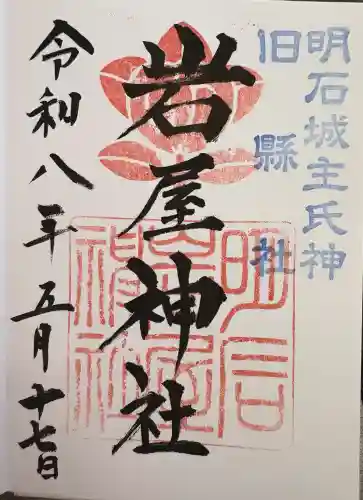 明石城主氏神
旧縣社
岩屋神社
令和八年五月十七日
明石岩屋神社